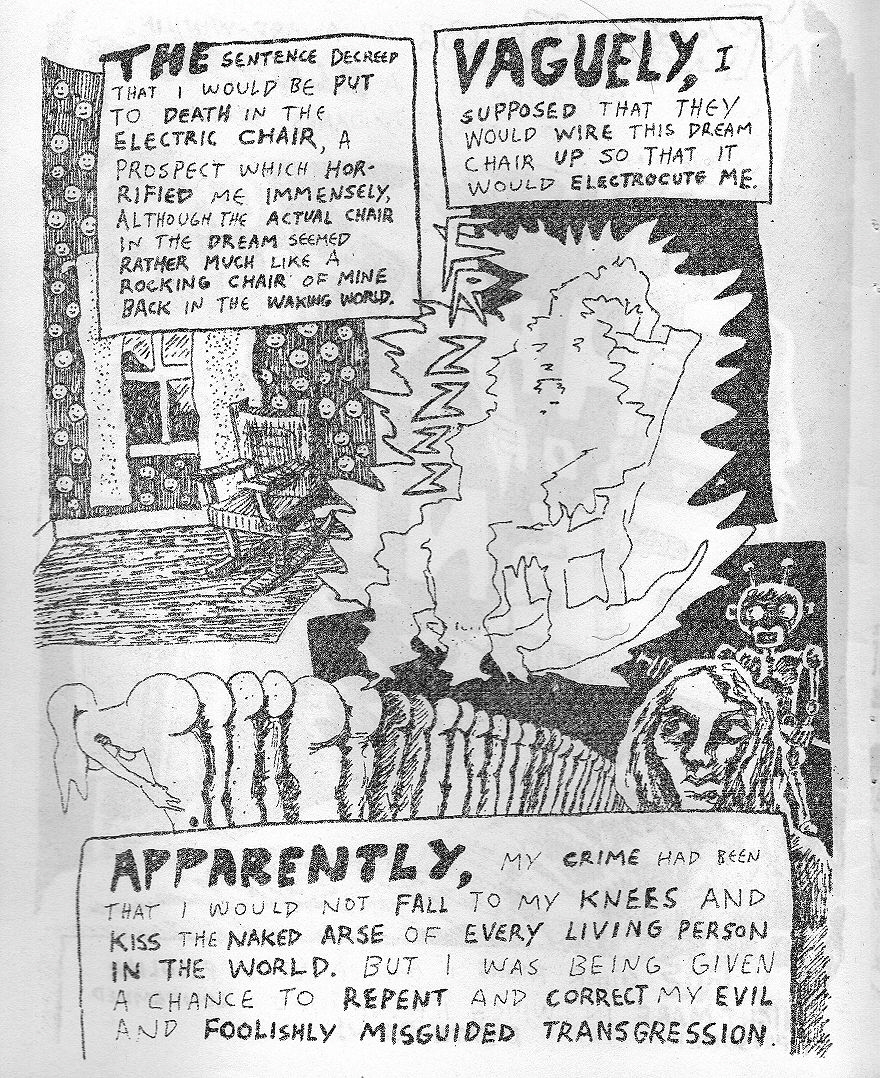 THE SENTENCE DECREED
THAT I WOULD BE PUT
TO DEATH IN THE
ELECTRIC CHAIR, A
PROSPECT WHICH HOR-
RIFIED ME IMMENSELY,
ALTHOUGH THE ACTUAL CHAIR
IN THE DREAM SEEMED
RATHER MUCH LIKE A
ROCKING CHAIR OF MINE
BACK IN THE WAKING WORLD.
VAGUELY, I
SUPPOSED THAT THEY
WOULD WIRE THIS DREAM
CHAIR UP SO THAT IT
WOULD ELECTROCUTE ME.
APPARENTLY, MY CRIME HAD BEEN
THAT I WOULD NOT FALL TO MY KNEES AND
KISS THE NAKED ARSE OF EVERY LIVING PERSON
IN THE WORLD. BUT I WAS BEING GIVEN
A CHANCE TO REPENT AND CORRECT MY EVIL
AND FOOLISHLY MISGUIDED TRANSGRESSION.